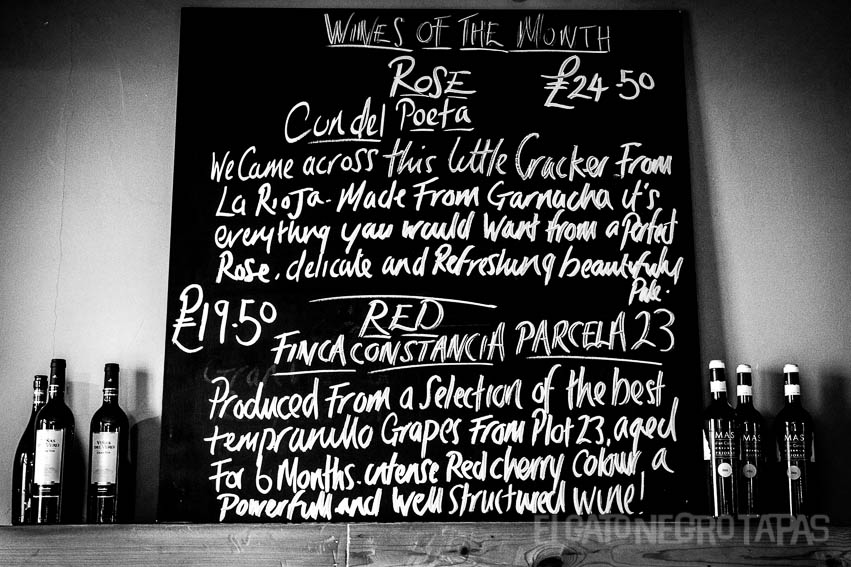 WINES OF THE MONTH
ROSE £24.50
Con del Poeta
We Came across this little Cracker From
La Rioja. Made From Garnacha it's
everything you would Want from a Perfect
Rose. delicate and Refreshing beautifully
Pale.
£19.50 RED
FINCA CONSTANCIA PARCELA 23
Produced From a Selection of the best
tempranillo Grapes From Plot 23, aged
For 6 Months. intense Red cherry Colour, a
Powerfull and Well Structured Wine!
MAS
MAS
MAS
EL GATO NEGRO TAPAS